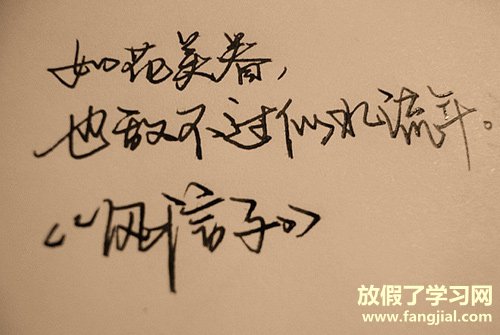 如花美眷，
也敌不过似水流年。
《风信子》
放假了学习网
www.fangjial.com